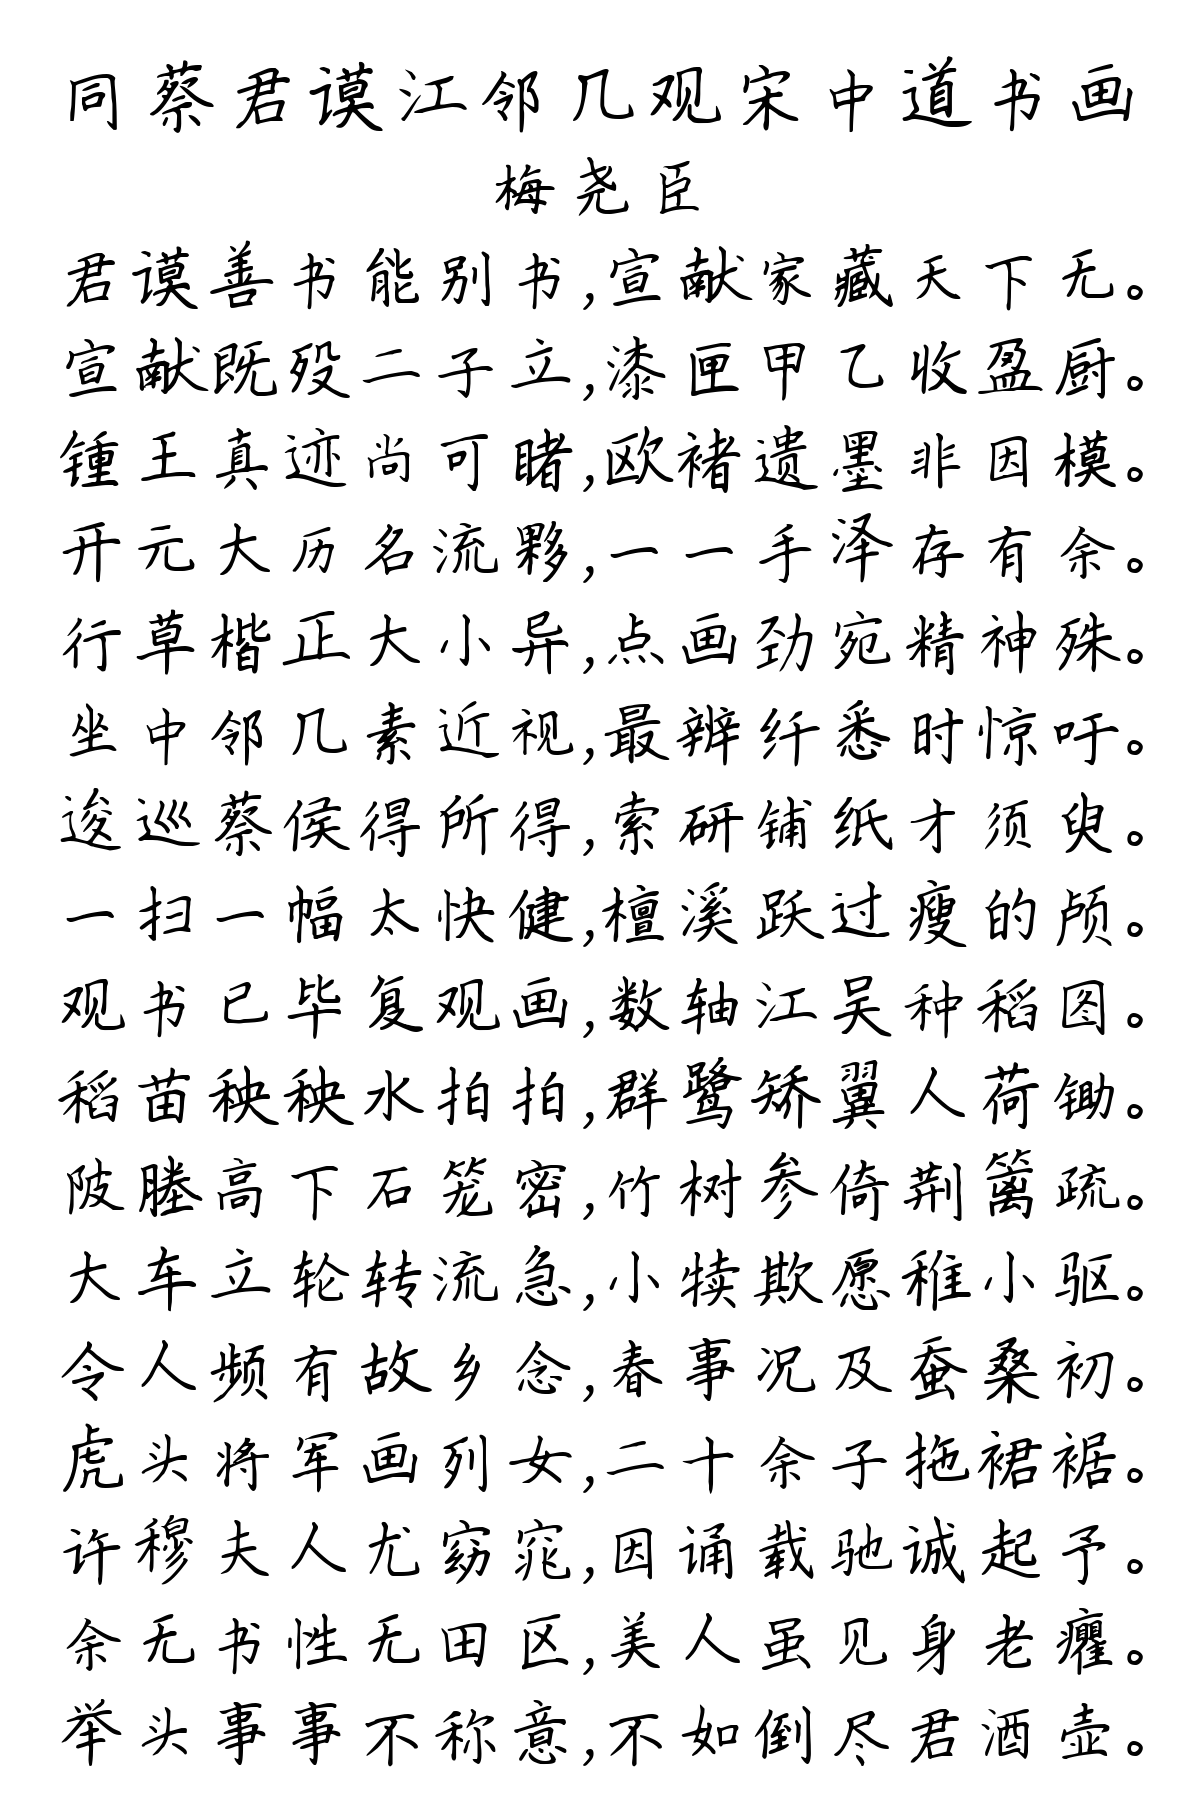 同蔡君谟江邻几观宋中道书画
梅尧臣
君谟善书能别书,宣献家藏天下无。
宣献既殁二子立,漆匣甲乙收盈厨。
锺王真迹尚可睹,欧褚遗墨非因模。
开元大历名流夥,一一手泽存有余。
行草楷正大小异,点画劲宛精神殊。
坐中邻几素近视,最辨纤悉时惊吁。
逡巡蔡侯得所得,索研铺纸才须臾。
一扫一幅太快健,檀溪跃过瘦的颅。
观书已毕复观画,数轴江吴种稻图。
稻苗秧秧水拍拍,群鹭矫翼人荷锄。
陂塍高下石笼密,竹树参倚荆篱疏。
大车立轮转流急,小犊欺愿稚小驱。
令人频有故乡念,春事况及蚕桑初。
虎头将军画列女,二十余子拖裙裾。
许穆夫人尤窈窕,因诵载驰诚起予。
余无书性无田区,美人虽见身老癯。
举头事事不称意,不如倒尽君酒壶。